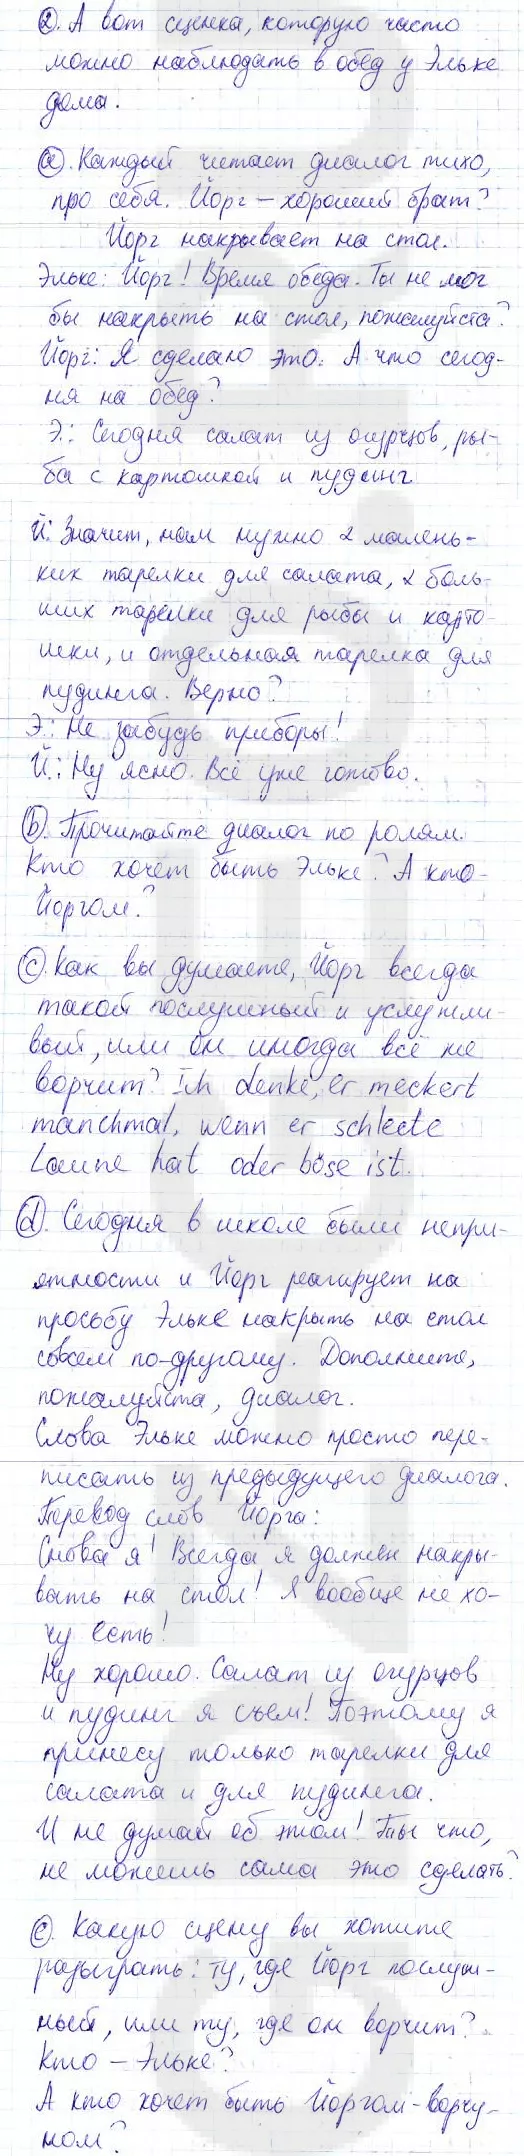 ②. А вот сценка, которую часто
можно наблюдать в обед у Эльке
дома.
ⓐ. Каждый читает диалог тихо,
про себя. Йорг – хороший брат?
Йорг накрывает на стол.
Эльке: Йорг! Время обеда. Ты не мог
бы накрыть на стол, пожалуйста?
Йорг: Я сделаю это. А что сегод-
ня на обед?
Э.: Сегодня салат из огурцов, ры-
ба с картошкой и пудинг
Й: Значит, нам нужно 2 малень-
ких тарелки для салата, 2 боль-
ших тарелки для рыбы и карто-
шки, и отдельная тарелка для
пудинга. Верно?
Э.: Не забудь приборы!
Й.: Ну ясно. Всё уже готово.
ⓑ. Прочитайте диалог по ролям.
Кто хочет быть Эльке? А кто-
Йоргом?
ⓒ. Как вы думаете, Йорг всегда
такой послушный и услужли-
вый, или он иногда всё же
ворчит? Ich denke, er meckert
manchmal, wenn er schlecte
Laune hat oder böse ist.
ⓓ. Сегодня в школе были непри-
ятности и Йорг реагирует на
просьбу Эльке накрыть на стол
совсем по-другому. Дополните,
пожалуйста, диалог.
Слова Эльке можно просто пере-
писать из предыдущего диалога.
Перевод слов Йорга:
Снова я! Всегда я должен накры-
вать на стол! Я вообще не хо-
чу есть!
Ну хорошо. Салат из огурцов
и пудинг я съем! Поэтому я
принесу только тарелки для
салата и для пудинга.
И не думай об этом! Ты что,
не можешь сама это сделать?
ⓔ. Какую сцену вы хотите
разыграть: ту, где Йорг послуш-
ный, или ту, где он ворчит?
Кто – Эльке?
А кто хочет быть Йоргом-ворчу-
ном?